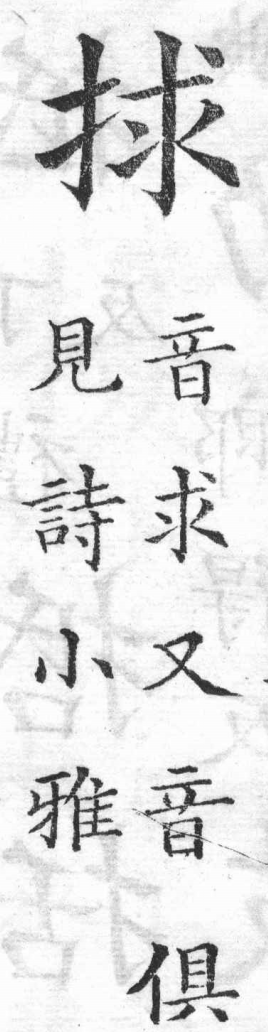 捄
音求又音俱
見詩小雅